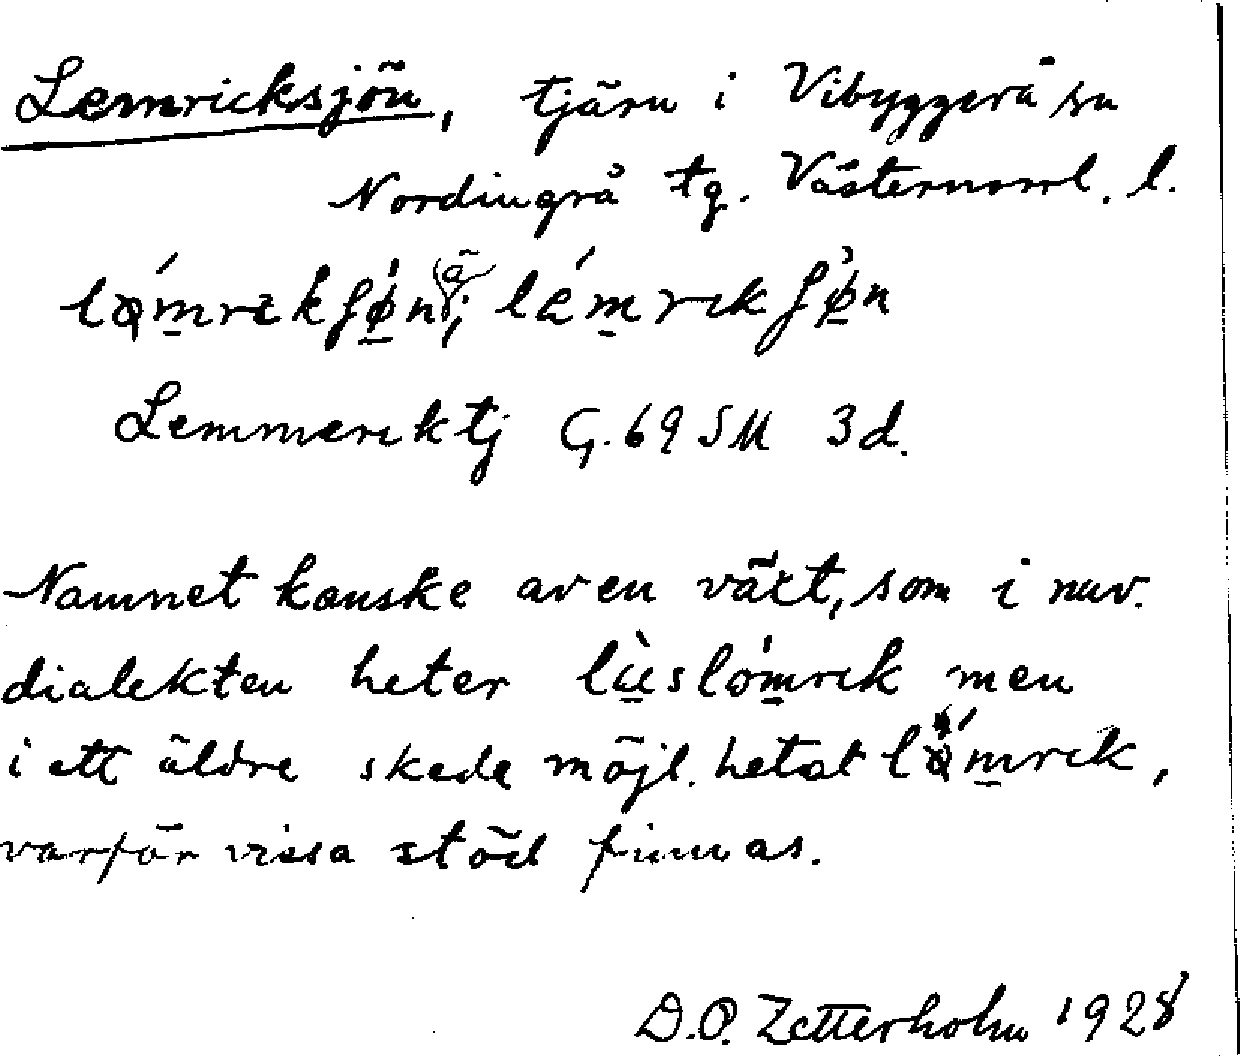 Lemricksjön, tjärn i Vibyggerå sn
Nordingrå tg. Västernorrl. l.
Lemmerektj G. 69 SM 3d.
Namnet kanske av en växt, som i nuv.
dialekten heter lùslómrɩk men
i ett äldre skede möjl. hetat
varför vissa stöd finnas.
D.O. Zetterholm 1928